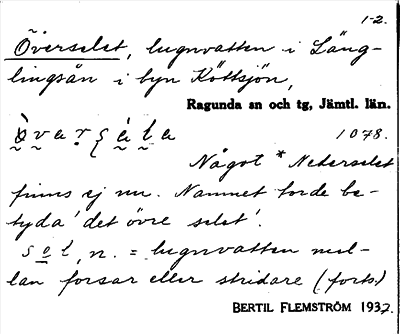 1-2.
Överselet, lugnvatten i Läng-
lingsån i byn Köttsjön,
Ragunda sn och tg, Jämtl. län.
1078.
Något * Neterselet
finns ej nu. Namnet torde be-
tyda 'det övre selet'.
sel, n. = lugnvatten mel-
lan forsar eller stridare (forts.)
BERTIL FLEMSTRÖM 1937.